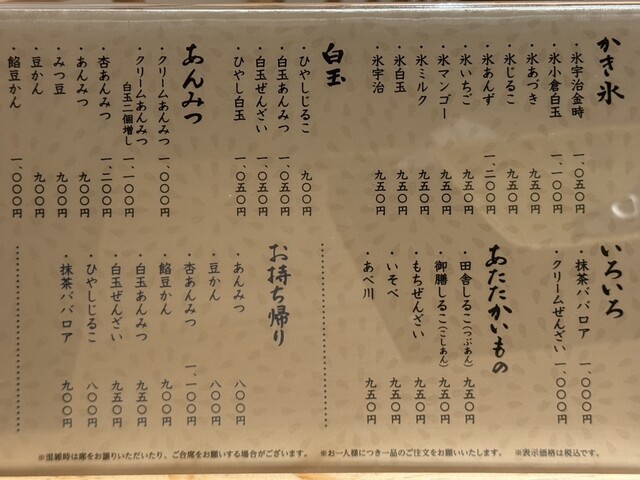 かき氷
・氷宇治金時 一、〇五〇円
・氷小倉白玉 一、一〇〇円
・氷あづき 九五〇円
・氷じるこ 九五〇円
・氷あんず 一、二〇〇円
・氷いちご 九五〇円
・氷マンゴー 九五〇円
・氷ミルク 九五〇円
・氷白玉 九五〇円
・氷宇治 九五〇円
白玉
・ひやしじるこ 九〇〇円
・白玉あんみつ 一、〇五〇円
・白玉ぜんざい 一、〇五〇円
・ひやし白玉 一、〇五〇円
あんみつ
・クリームあんみつ 一、〇〇〇円
・クリームあんみつ
白玉二個増し 一、一〇〇円
・杏あんみつ 一、二〇〇円
・あんみつ 九〇〇円
・みつ豆 九〇〇円
・豆かん 九〇〇円
・餡豆かん 一、〇〇〇円
いろいろ
・抹茶ババロア 一、〇〇〇円
・クリームぜんざい 一、〇〇〇円
あたたかいもの
・田舎しるこ(つぶあん) 九五〇円
・御膳しるこ(こしあん) 九五〇円
・もちぜんざい 九五〇円
・いそべ 九五〇円
・あべ川 九五〇円
お持ち帰り
・あんみつ 八〇〇円
・豆かん 八〇〇円
・杏あんみつ 一、一〇〇円
・餡豆かん 九〇〇円
・白玉あんみつ 九五〇円
・白玉ぜんざい 九五〇円
・ひやしじるこ 八〇〇円
・抹茶ババロア 九〇〇円
※混雑時は席をお譲りいただいたり、ご合席をお願いする場合がございます。 ※お一人様につき一品のご注文をお願いいたします。 ※表示価格は税込です。